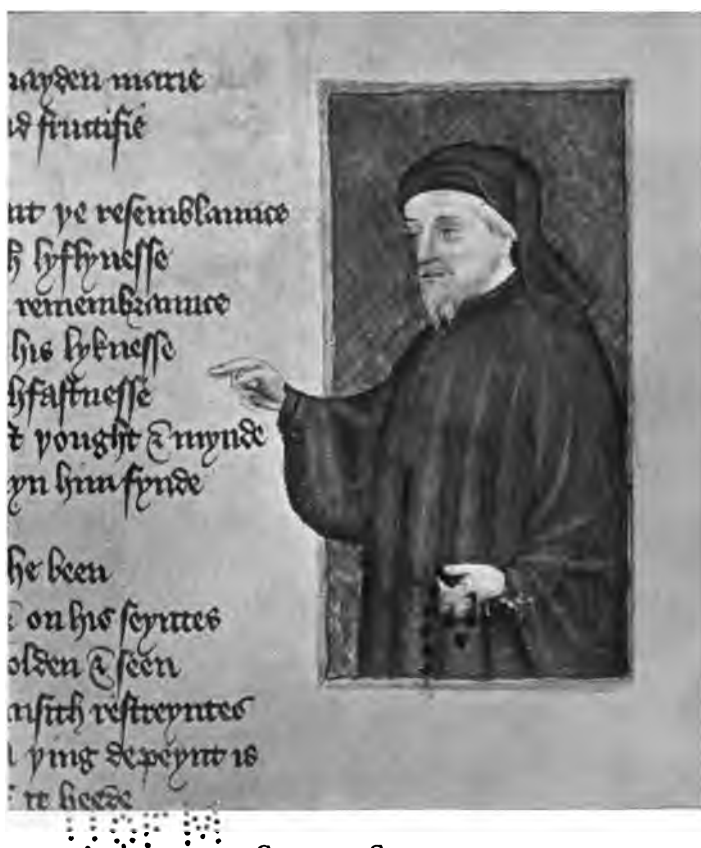 ayden marie
d fructifie
nt ye resemblaunce
h lyflynesse
remembraunce
his lyknesse
hfastnesse
t yought & mynde
yn him fynde
he been
on his seyntes
olden & seen
nsith restreyntes
ying depeynt is
it heede